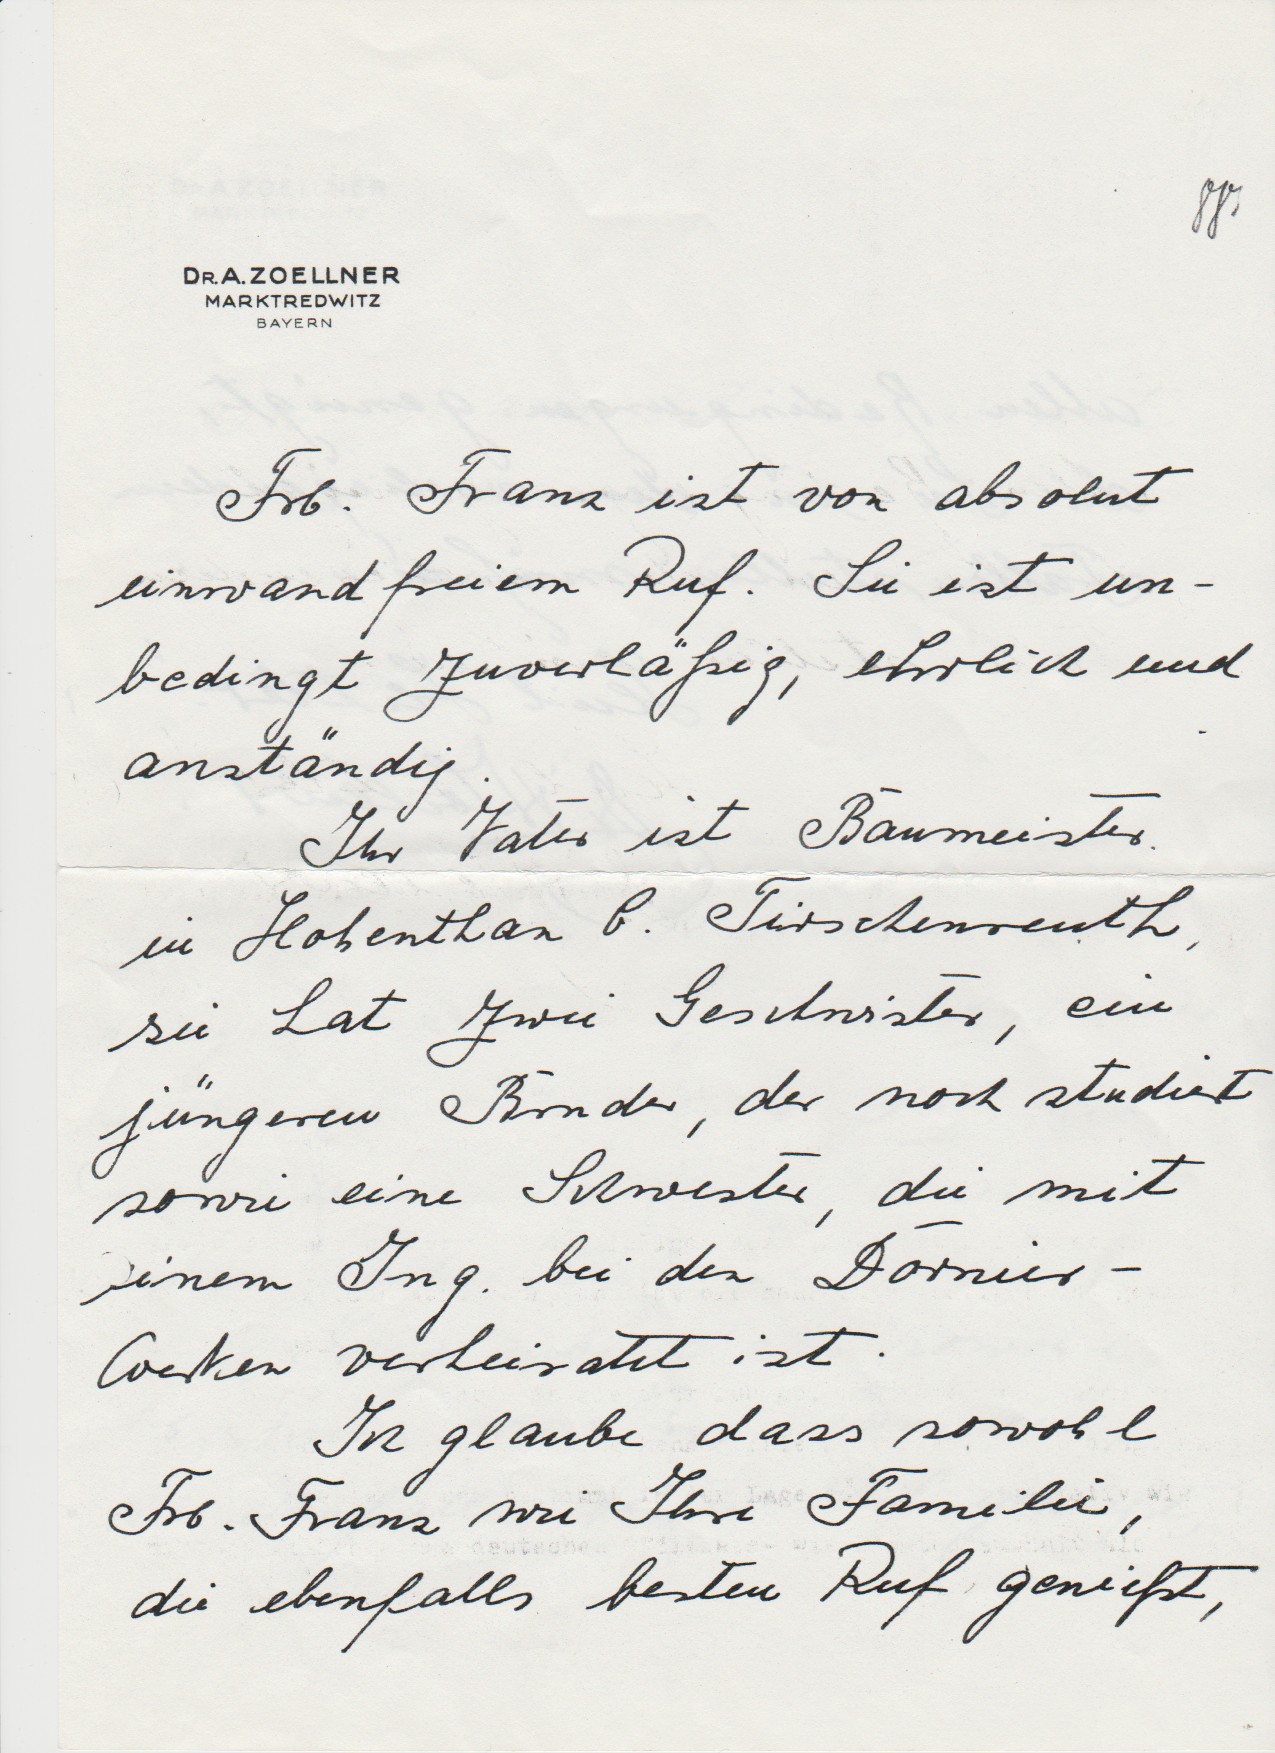 DR. A. ZOELLNER
MARKTREDWITZ
BAYERN
Frl. Franz ist von absolut
einwandfreiem Ruf. Sie ist un-
bedingt zuverläßig, ehrlich und
anständig.
Ihr Vater ist Baumeister.
in Hohenthan b. Tirschenreuth,
sie hat zwei Geschwister, ein
jüngeren Bruder, der noch studiert
sowie eine Schwester, die mit
einem Ing. bei den Dornier-
Werken verheiratet ist.
Ich glaube dass sowohl
Frl. Franz wie Ihre Familie,
die ebenfalls besten Ruf genießt,